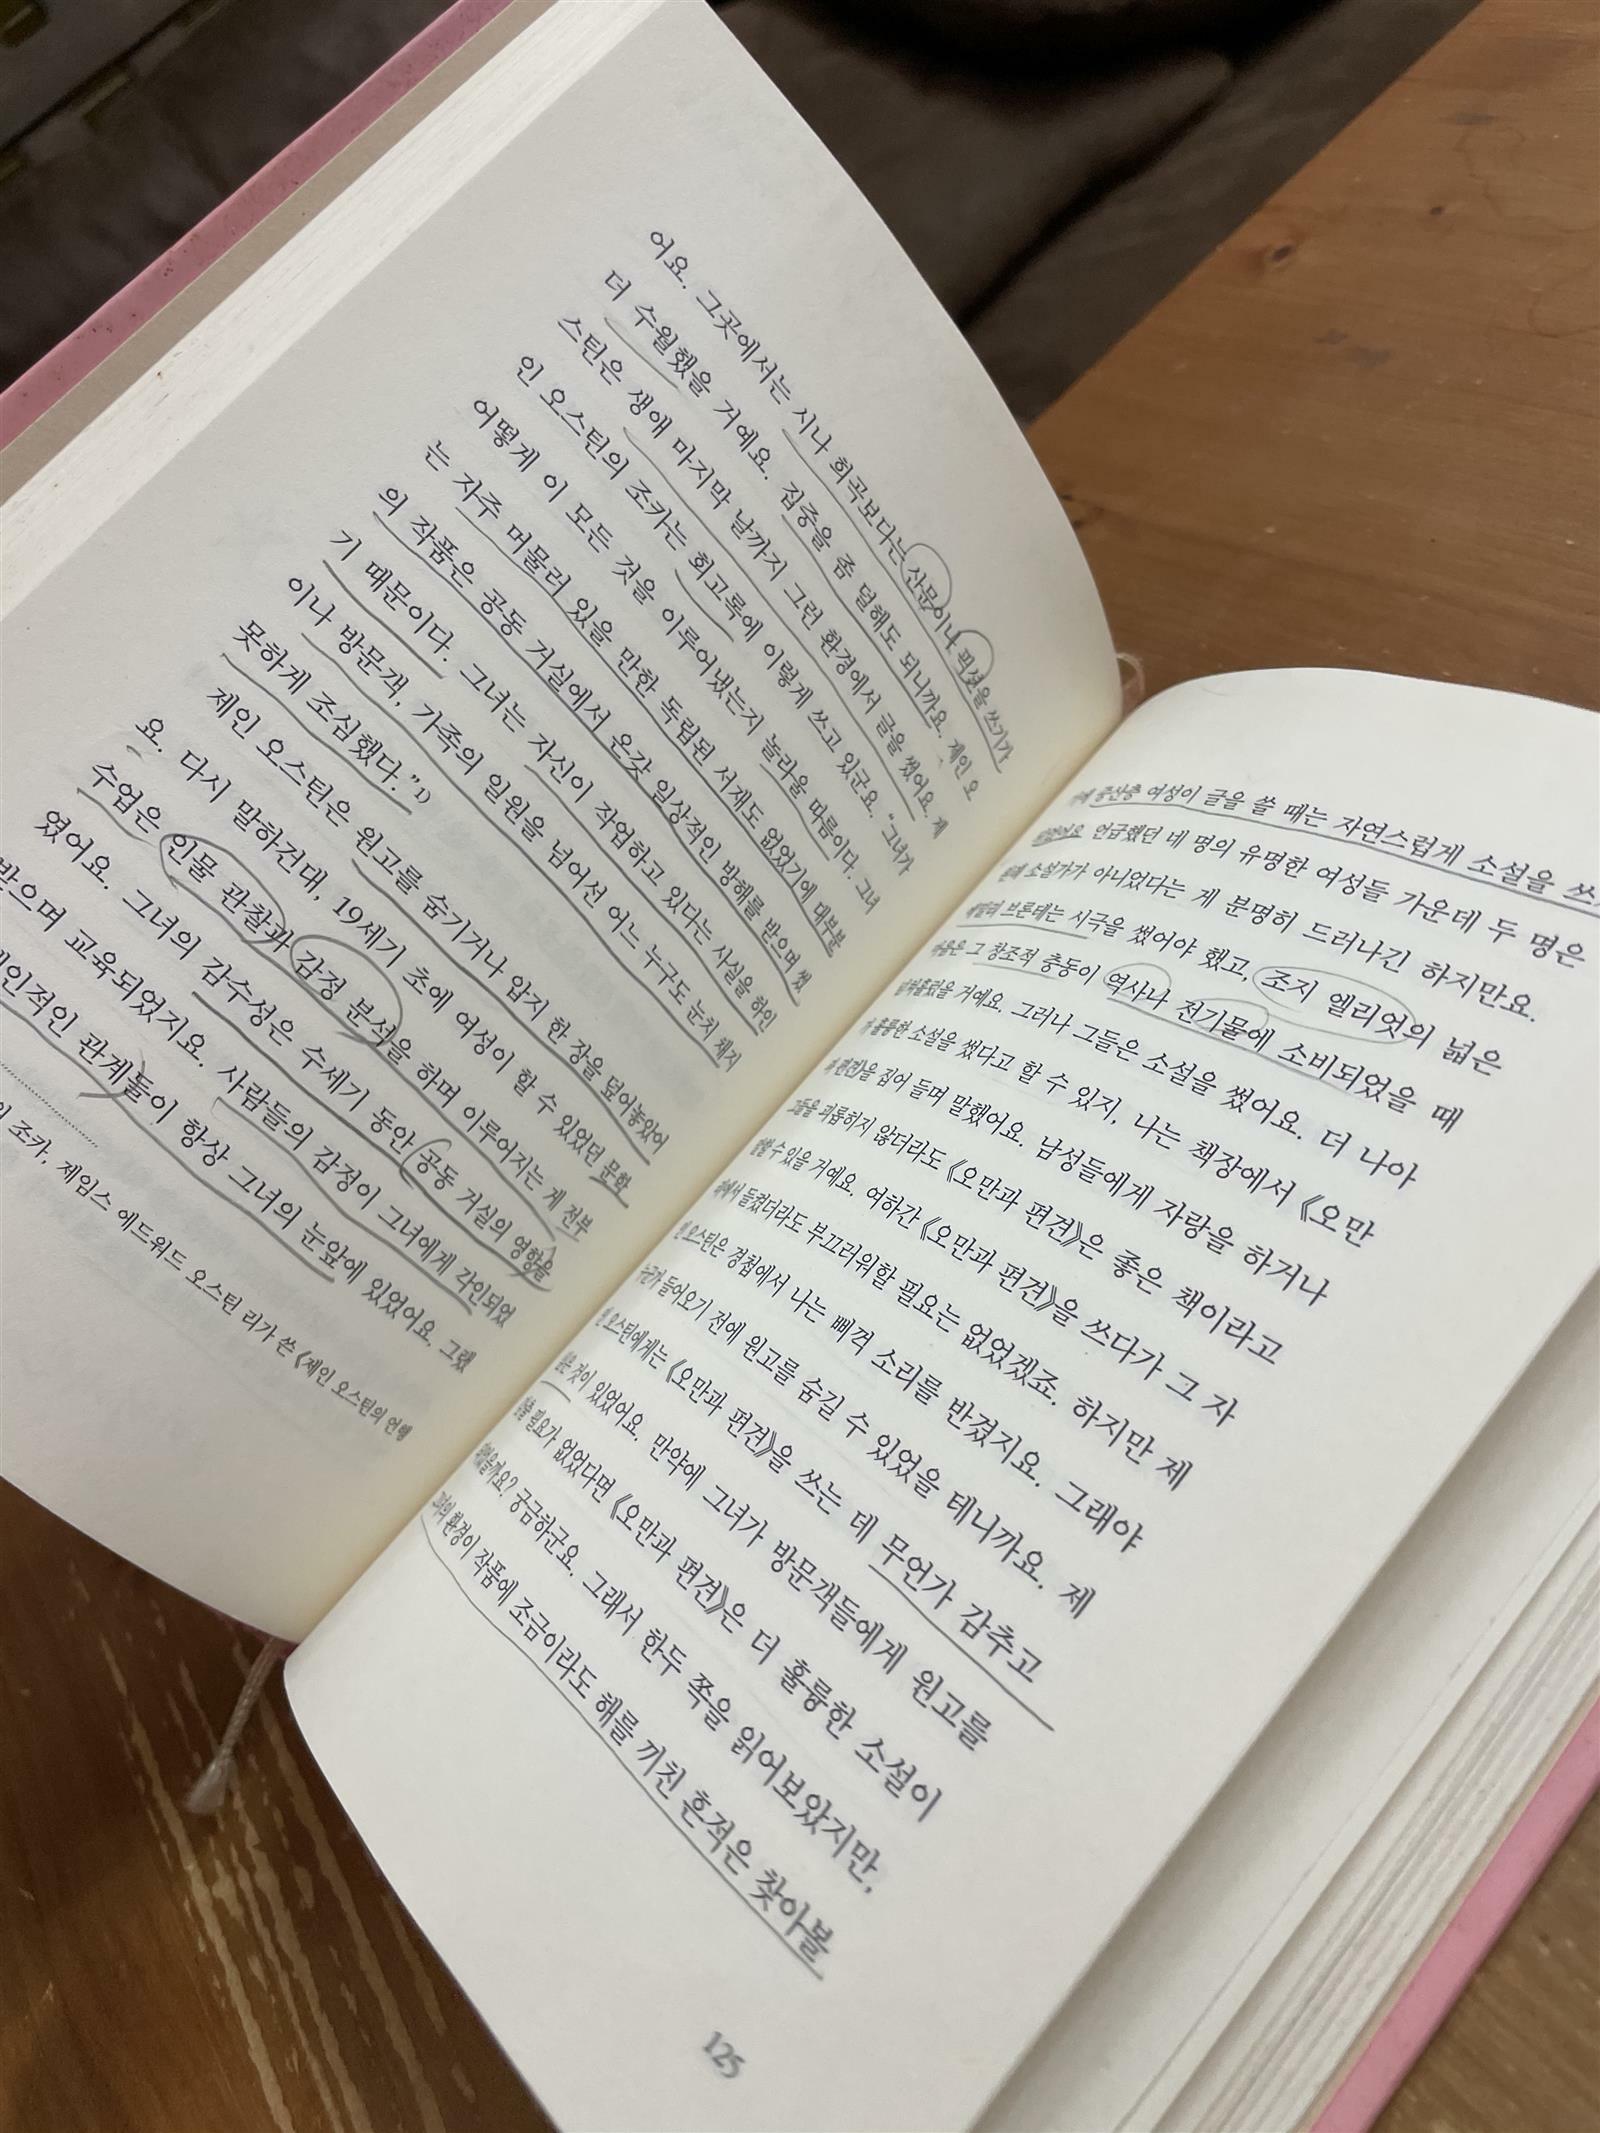 어요. 그곳에서는 시나 희곡보다는 산문이나 픽션을 쓰기가
더 수월했을 거예요. 집중을 좀 덜해도 되니까요. 제인 오
스틴은 생애 마지막 날까지 그런 환경에서 글을 썼어요. 제
인 오스틴의 조카는 회고록에 이렇게 쓰고 있군요. “그녀가
어떻게 이 모든 것을 이루어냈는지 놀라울 따름이다. 그녀
는 자주 머물러 있을 만한 독립된 서재도 없었기에 대부분
의 작품은 공동 거실에서 온갖 일상적인 방해를 받으며 썼
기 때문이다. 그녀는 자신이 작업하고 있다는 사실을 하인
이나 방문객, 가족의 일원을 넘어선 어느 누구도 눈치 채지
못하게 조심했다.”1)
제인 오스틴은 원고를 숨기거나 압지 한 장을 덮어놓았어
요. 다시 말하건대, 19세기 초에 여성이 할 수 있었던 문학
수업은 인물 관찰과 감정 분석을 하며 이루어지는 게 전부
였어요. 그녀의 감수성은 수세기 동안 공동 거실의 영향을
받으며 교육되었지요. 사람들의 감정이 그녀에게 각인되었
개인적인 관계들이 항상 그녀의 눈앞에 있었어요. 그랬
조카, 제임스 에드워드 오스틴 리가 쓴 《제인 오스틴의 언행
중산층 여성이 글을 쓸 때는 자연스럽게 소설을
언급했던 네 명의 유명한 여성들 가운데 두 명은
소설가가 아니었다는 게 분명히 드러나긴 하지만요.
에밀리 브론테는 시극을 썼어야 했고, 조지 엘리엇의 넓은
마음은 그 창조적 충동이 역사나 전기물에 소비되었을 때
거예요. 그러나 그들은 소설을 썼어요. 더 나아
가 훌륭한 소설을 썼다고 할 수 있지, 나는 책장에서 《오만
과 편견》을 집어 들며 말했어요. 남성들에게 자랑을 하거나
그들을 괴롭히지 않더라도 《오만과 편견》은 좋은 책이라고
말할 수 있을 거예요. 여하간 《오만과 편견》을 쓰다가 그 자
리에서 들켰더라도 부끄러워할 필요는 없었겠죠. 하지만 제
인 오스틴은 경첩에서 나는 삐걱 소리를 반겼지요. 그래야
누군가 들어오기 전에 원고를 숨길 수 있었을 테니까요. 제
인 오스틴에게는 《오만과 편견》을 쓰는 데 무언가 감추고
싶은 것이 있었어요. 만약에 그녀가 방문객들에게 원고를
숨길 필요가 없었다면 《오만과 편견》은 더 훌륭한 소설이
되었을까요? 궁금하군요. 그래서 한두 쪽을 읽어보았지만,
그녀의 환경이 작품에 조금이라도 해를 끼친 흔적은 찾아볼
125